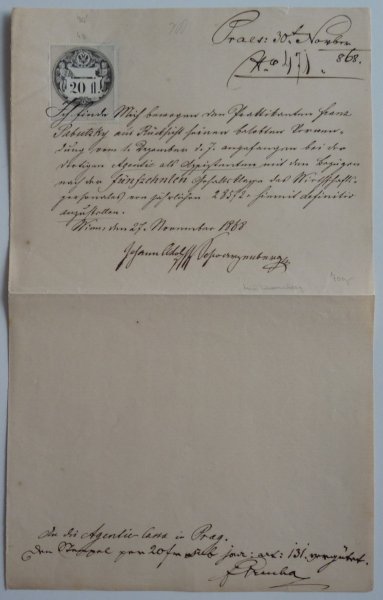 Praes: 30t Novbr
868.
No 471
20 fl.
Ich finde Mich bewogen den Praktikanten Franz
aus Rücksicht seiner belobten Verwen-
dung vom 1. Dezember d. J. angefangen bei der
dortigen Agentie als Assistenten mit den Bezügen
nach der fünfzehnten Gehaltsklasse des Wirthschafts-
personales von jährlichen hiermit definitiv
anzustellen.
Wien, den 27. November 1868
Johann Adolf Schwarzenberg
An die Agentie Cassa in Prag.
den Stempel per 20 sub jor: art: 131 vergütet.